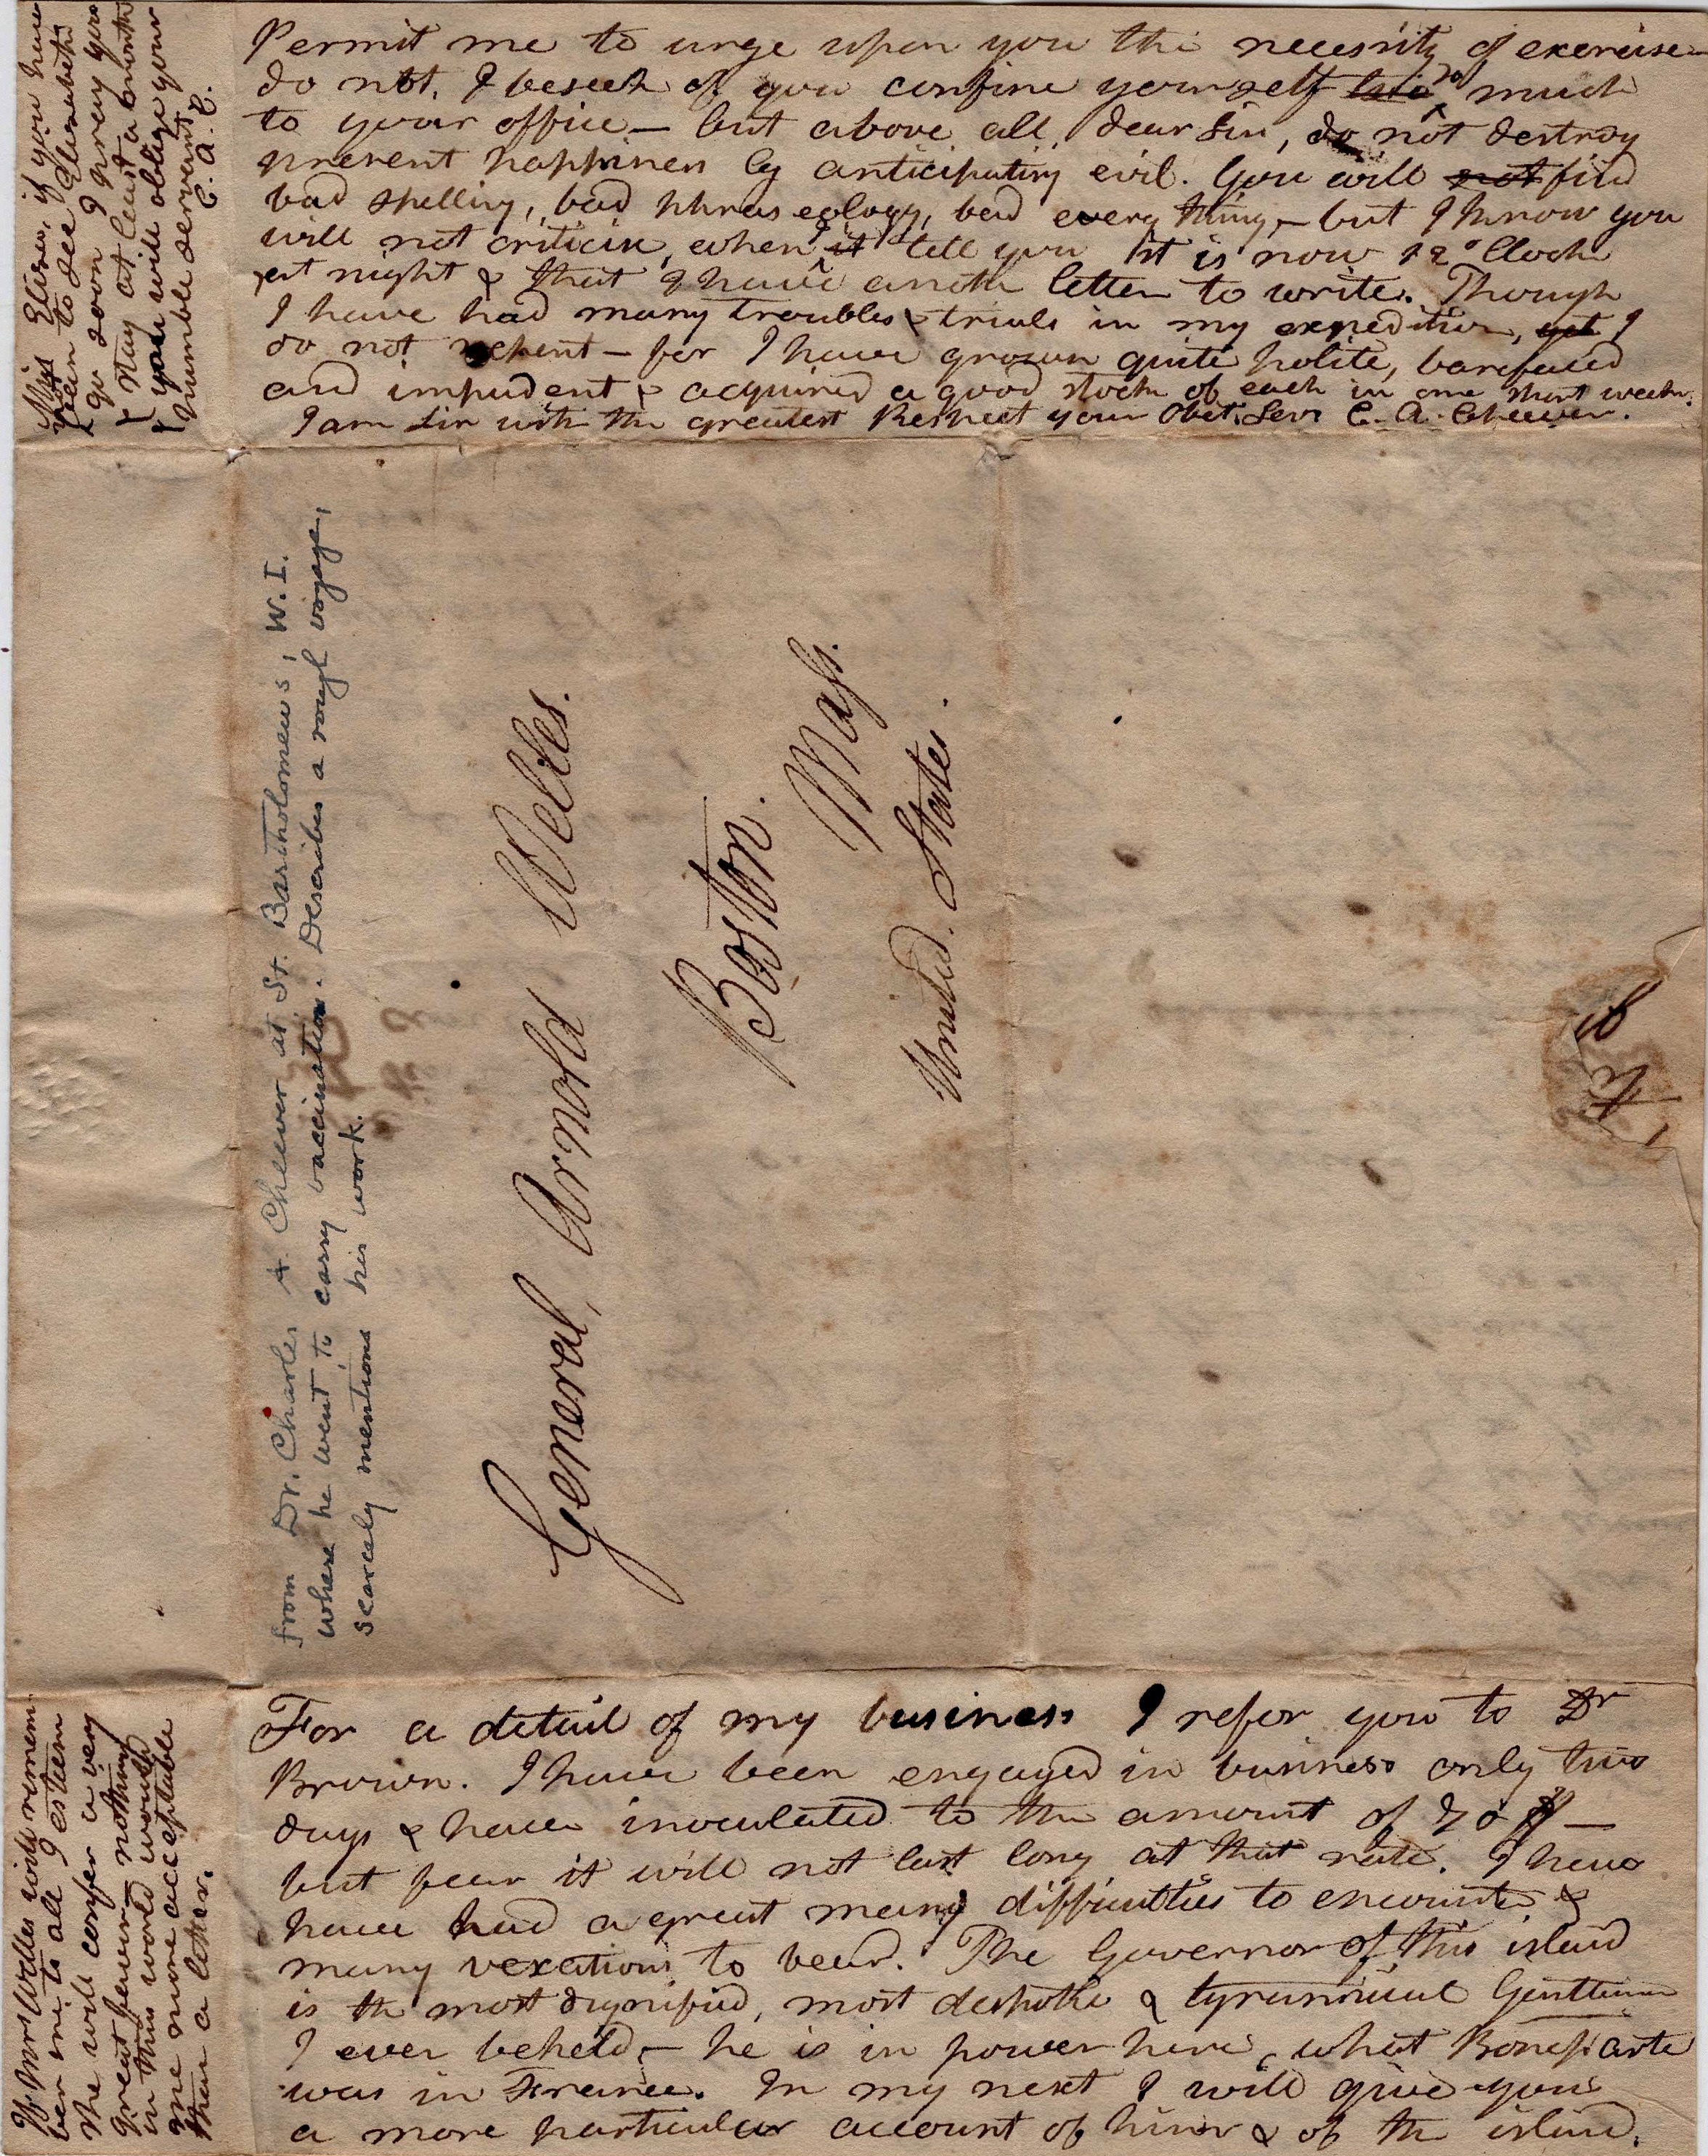 Permit me to urge upon you the necessity of exercise
do not, I beseech of you confine yourself too so much
to your office — but above all, dear Sir, do not destroy
present happiness by anticipating evil. You will not find
bad spelling, bad phraseology, bad every thing, — but I know you
will not criticise, when I it tell you it is now 12 oClock
at night & that I have anoth letter to write. Though
I have had many troubles & trials in my expedition, yet I
do not repent — for I have grown quite polite, barefaced
and impudent & acquired a good stock of each in one short week.
I am Sir with the greatest Respect your Obet. Serv C. A. Cheever.
Miss Eliza, if you have
been to see Elizabeth
go soon I pray you
& stay at least a month
& you will oblige your
humble servant
C. A. C.
From Dr. Charles A. Cheever at St. Bartholomew's, W. I.
where he went to carry vaccination. Describes a rough voyage,
scarcely mentions his work.
General, Arnold Welles.
Boston.
Mass.
United. States.
For a detail of my business I refer you to Dr
Brown. I have been engaged in business only two
days & have inoculated to the amount of 70 $ —
but fear it will not last long at that rate. I have
have had a great many difficulties to encounter &
many vexations to bear. The Governor of this island
is the most dignified, most despotic & tyrannical Gentleman
I ever beheld, — he is in power here, what Bonaparte
was in France. In my next I will give you
a more particular account of him & of the island.
If Mrs Welles will remem
ber me to all I esteem
she will confer a very
great favour nothing
in this world would
be more acceptable
than a letter.